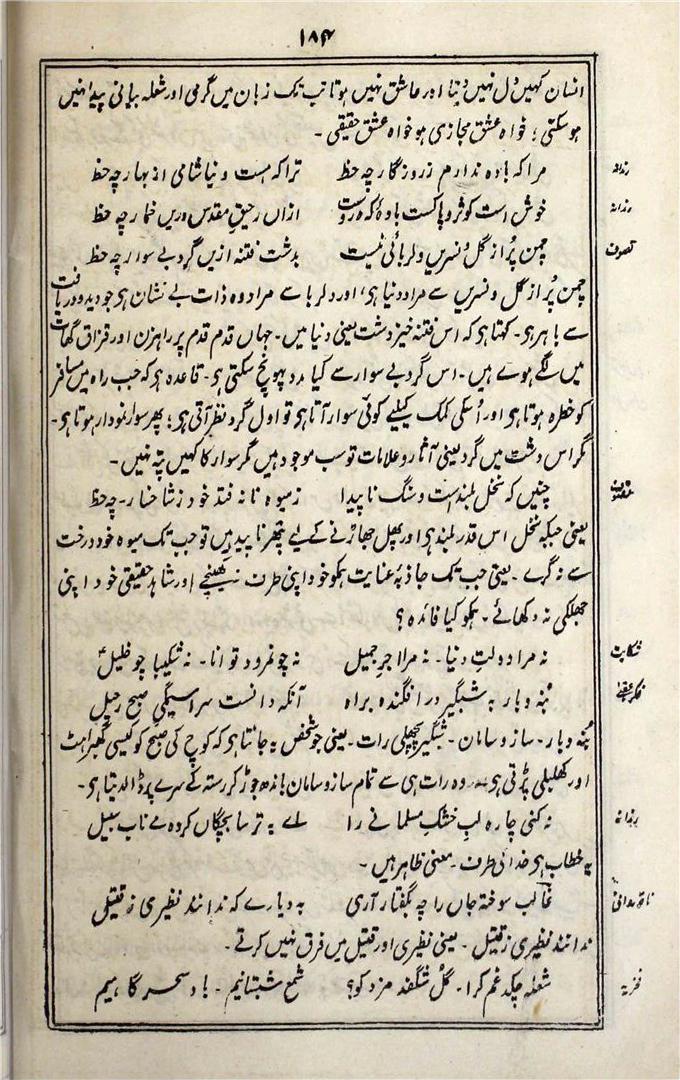 ۱۸۴
انسان کہیں دل نہیں دیتا اور عاشق نہیں ہوتا تب تک زبان میں گرمی اور شعلہ بیانی پیدا نہیں
ہوسکتی؛ خواہ عشق مجازی ہو خواہ عشق حقیقی۔
رندانہ مرا کہ بادہ ندارم ز روزگار چہ حظ ترا کہ ہست و نیاشامی از بہار چہ حظ
رندانہ خوش است کوثر و پاکست بادۂ کہ دروست ازاں رحیق مقدس دریں خمار چہ حظ
تصوف چمن پُر از گل و نسریں و دلربائی نیست بدشت فتنہ ازیں گرد بے سوار چہ حظ
چمن پُر از گل و نسریں سے مراد دنیا ہی، اور دلربا سے مراد وہ ذات بے نشان ہی جو دید و دریافت
سے باہر ہی۔ کہتا ہی کہ اس فتنہ خیز دشت یعنی دنیا میں۔ جہاں قدم قدم پر راہزن اور قزاق گھات
میں لگے ہوے ہیں۔ اس گرد بے سوار سے کیا مدد پہونچ سکتی ہی۔ قاعدہ ہی کہ جب راہ میں مسافر
کو خطرہ ہوتا ہی اور اُسکی کمک کیلیے کوئی سوار آتا ہی تو اول گرد نظر آتی ہی؛ پھر سوار نمودار ہوتا ہی۔
مگر اس دشت میں گرد یعنی آثار و علامات تو سب موجود ہیں مگر سوار کا کہیں پتہ نہیں۔
تصوف چنیں کہ نخل بلند ست و سنگ ناپیدا ز میوہ تا نہ فتد خود ز شاخسار۔ چہ حظ
یعنی جبکہ نخل اس قدر بلند ہی اور پھل جھاڑنے کے لیے پتھر ناپید ہیں تو جب تک میوہ خود درخت
سے نہ گرے۔ یعنی جب تک جاذبۂ عنایت ہمکو خود اپنی طرف نہ کھینچے اور شاہد حقیقی خود اپنی
جھلکی نہ دکھائے۔ ہمکو کیا فائدہ؟
شکایت نہ مرا دولت دنیا۔ نہ مرا اجر جمیل نہ چو نمرود توانا۔ نہ شکیبا چو خلیلؑ
فکر عقبےٰ بُنہ و بار بہ شبگیر در افگندہ براہ آنکہ دانست سراسیمگیِ صبح رحیل
بُنہ و بار۔ ساز و سامان۔ شبگیر پچھلی رات۔ یعنی جو شخص یہ جانتا ہی کہ کوچ کی صبح کو کیسی گھبراہٹ
اور کھلبلی پڑتی ہی وہ رات ہی سے تمام ساز و سامان باندھ جوڑ کر رستہ کے سرے پر ڈالدیتا ہی۔
رندانہ نہ کنی چارہ لب خشک مسلمانے را اے بہ ترسا بچگاں کردہ مے ناب سبیل
یہ خطاب ہی خدا کی طرف۔ معنی ظاہر ہیں۔
غالب سوختہ جاں را چہ بگفتار آری بہ دیارے کہ ندانند نظیری ز قتیل
ندانند نظیری ز قتیل۔ یعنی نظیری اور قتیل میں فرق نہیں کرتے۔
فخریہ شعلہ چکد غم کرا۔ گل شگفد مزد کو؟ شمع شبستانیم۔ باد سحر گاہیم